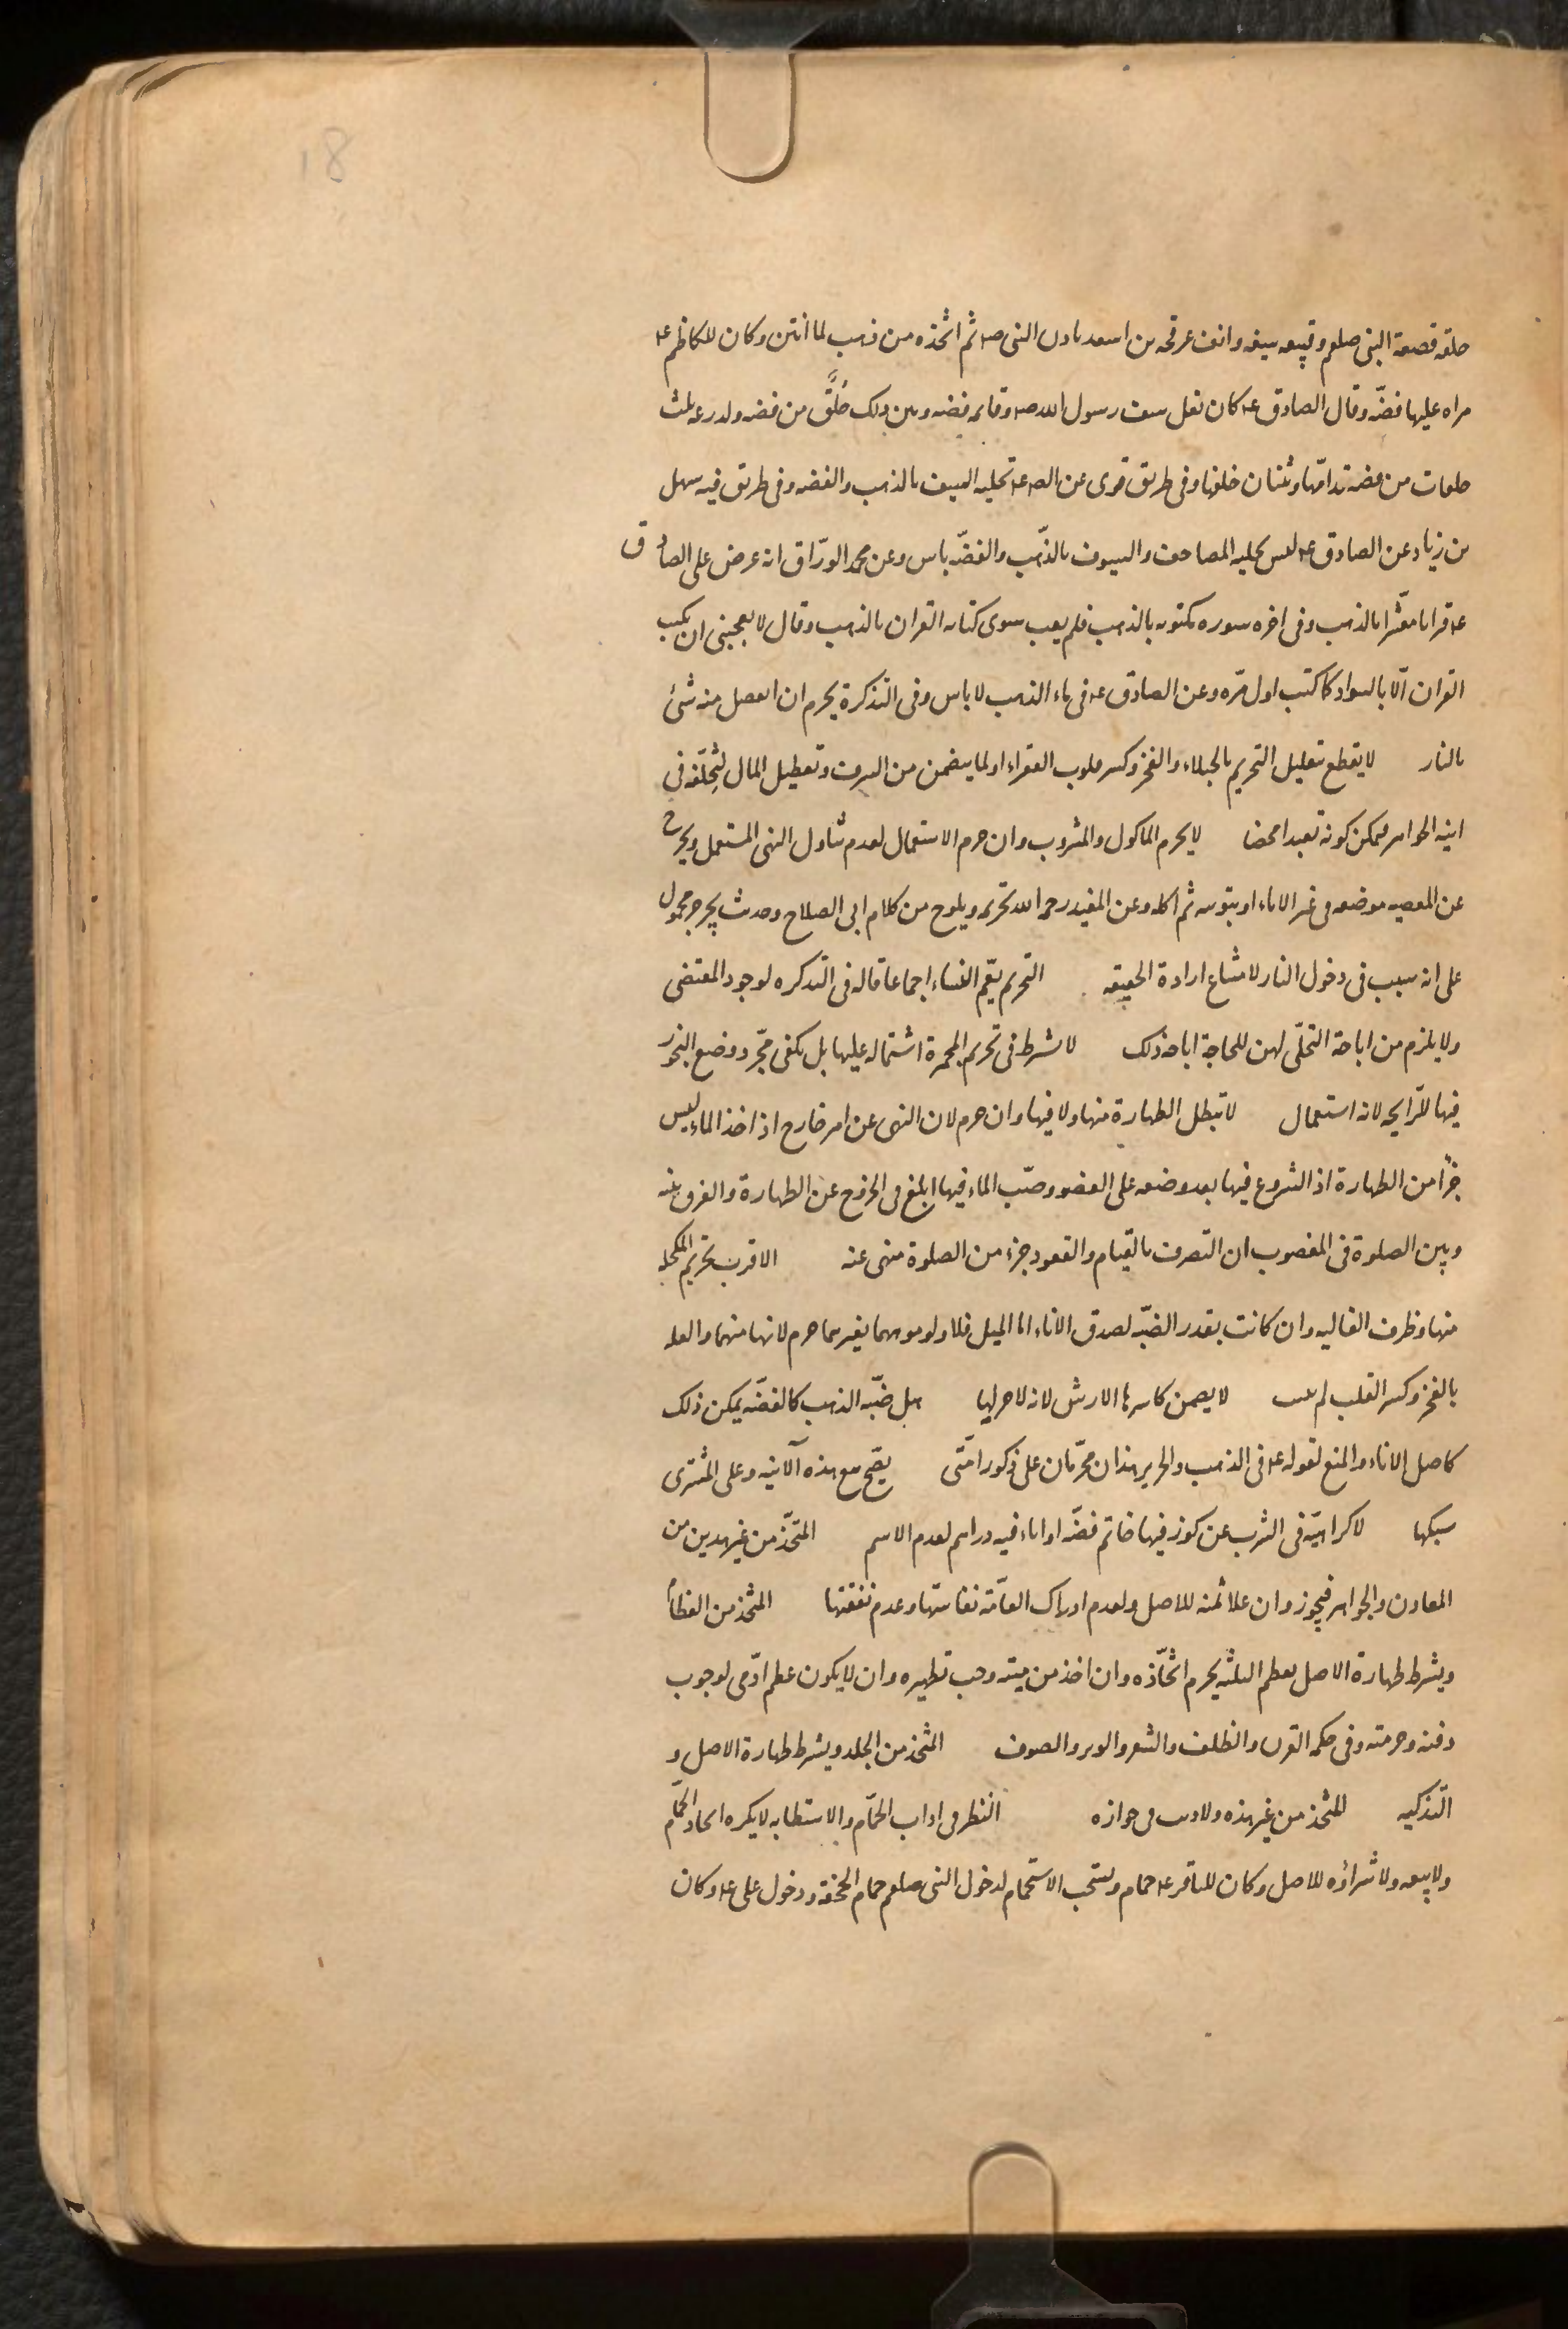 18
حلقه قصعة النبی صلعم وقبیعه سیفه وانف عرفجه بن اسعد باذن النبی صه ثم اتخذه من ذهب لما انتن وکان للکاظم عه
مراه علیها فضّه وقال الصادق عه کان نعل سیف رسول الله صه وقایمه فضه وبین ذلک حَلَقٌ من فضه ولدرعه ثلث
حلقات من فضه قدامها وثنتان خلفها وفی طریق قوی عن الصه عه تحلیه السیف بالذهب والفضه وفی طریق فیه سهل
بن زیاد عن الصادق عه لیس بحلیه المصاحف والسیوف بالذّهب والفضّه باس وعن محمد الورّاق انه عرض علی الصادق
عه قرانا معشّرا بالذهب وفی اخره سوره مکتوبه بالذهب فلم یعب سوی کتابه القران بالذهب وقال لا یعجبنی ان یکتب
القران الّا بالسواد کما کتب اول مرّه وعن الصادق عه فی ماء الذهب لا باس وفی التذکرة یحرم ان انفصل منه شئ
بالنار لا یقطع تعلیل التحریم بالخیلاء والفخر وکسر قلوب الفقراء او لما یتضمن من السرف وتعطیل المال لتخلفه فی
انیه الجواهر فیمکن کونه تعبدا محضا لا یحرم الماکول والمشروب وان حرم الاستعمال لعدم تناول النهی المستعمل ویخرج
عن المعصیه بوضعه فی غیر الاناء او بتوبته ثم اکله وعن المفید رحمه الله تحریمه ویلوح من کلام ابی الصلاح وحدیث یجرجر محمول
علی انه سبب فی دخول النار لامتناع ارادة الحقیقه التحریم یعّم النساء اجماعا قاله فی التذکره لوجود المقتضی
ولا یلزم من اباحة التحلّی لهن للحاجة اباحه ذلک لا یشترط فی تحریم المجمرة اشتماله علیها بل یکفی مجّرد وضع البخور
فیها للرّایحه لانه استعمال لا تبطل الطهارة منها ولا فیها وان حرم لان النهی عن امر خارج اذ اخذ الماء لیس
جزًا من الطهارة اذ الشروع فیها بعد وضعه علی العضو وصبّ الماء فیها ابلغ فی الخروج عن الطهارة والفرق بینه
وبین الصلوة فی المغصوب ان التصرف بالقیام والقعود جزء من الصلوة منهی عنه الاقرب تحریم المکحله
منها وظرف الغالیه وان کانت بقدر الضبّه لصدق الاناء اما المیل فلا ولو موههما بغیرهما حرم لانها منهما والعله
بالفخر وکسر القلب لم یثبت لا یضمن کاسرها الارش لانه لا حرمة لها هل ضبّه الذهب کالفضّه یمکن ذلک
کاصل الاناء والمنع لقوله عه فی الذهب والحریر هذان محرّمان علی ذکور امّتی یصّح بیع هذه الآنیه وعلی المشتری
سبکها لا کراهیّه فی الشرب عن کوز فیها خاتم فضّه او اناء فیه دراهم لعدم الاسم المتّخذ من غیر هذین من
المعادن والجواهر فیجوز وان غلا ثمنه للاصل ولعدم ادراک العامّه نفاستها وعدم نفقتها المتّخذ من العظام
ویشترط طهارة الاصل بعظم الثلثه یحرم اتخّاذه وان اخذ من میته وجب تطهیره وان لا یکون عظم ادّمی لوجوب
دفنه وحرمته وفی حکمه القرن والظلف والشعر والوبر والصوف المتّخذ من الجلد ویشترط طهارة الاصل و
التّذکیه المتّخذ من غیر هذه ولا ریب فی جوازه النظر فی اداب الحمّام والاستطابه لا یکره اتخاذ الحمّام
ولا بیعه ولا شراؤه للاصل وکان للباقر عه حمام ویستحب الاستحمام لدخول النبی صلعم حمام الجحفة ودخول علی عه وکان